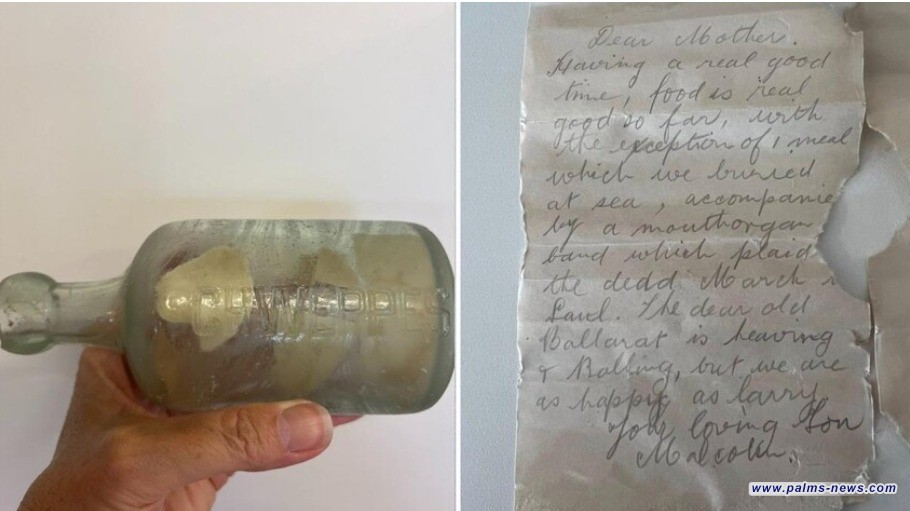 SCHWEPPES
Dear Mother.
Having a real good
time, food is real
good so far, with
the exception of 1 meal
which we buried
at sea, accompanie
by a mouthorgan
band which plaid
the dedd March
Saul. The dear old
Ballarat is heaving
& Rolling, but we are
as happy as larry
Your loving Son
Malcolm.
www.palms-news.com